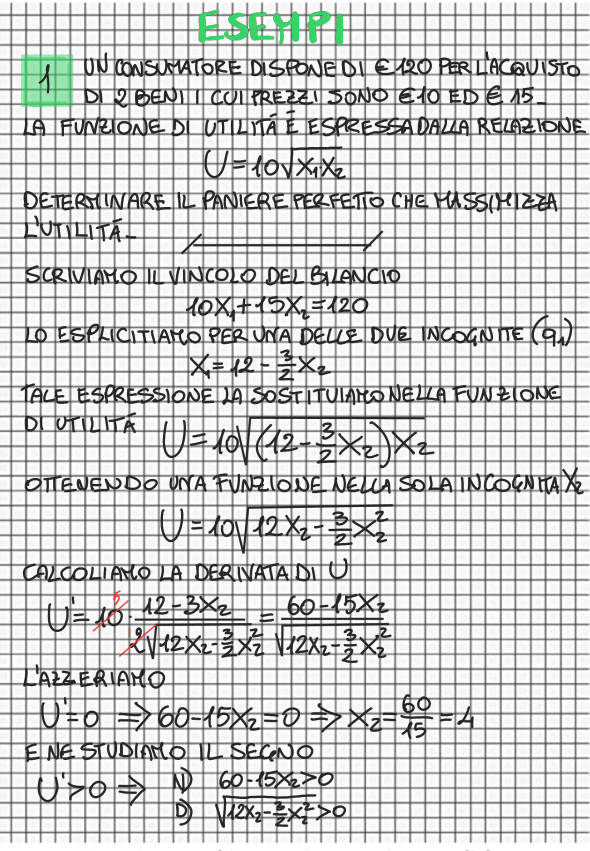 ESEMPI
1 UN CONSUMATORE DISPONE DI € 120 PER L'ACQUISTO
DI 2 BENI I CUI PREZZI SONO €10 ED € 15_
LA FUNZIONE DI UTILITÁ É ESPRESSA DALLA RELAZIONE
U=10√X₁X₂
DETERMINARE IL PANIERE PERFETTO CHE MASSIMIZZA
L'UTILITÁ_
SCRIVIAMO IL VINCOLO DEL BILANCIO
10X₁+15X₂=120
LO ESPLICITIAMO PER UNA DELLE DUE INCOGNITE (q₁)
X₁=12-3/2X₂
TALE ESPRESSIONE LA SOSTITUIAMO NELLA FUNZIONE
DI UTILITÁ U=10√(12-3/2X₂)X₂
OTTENENDO UNA FUNZIONE NELLA SOLA INCOGNITA X₂
U=10√12X₂-3/2X₂²
CALCOLIAMO LA DERIVATA DI U
U'=10⁵·(12-3X₂)/(2√12X₂-3/2X₂²)=(60-15X₂)/(√12X₂-3/2X₂²)
L'AZZERIAMO
U'=0 ⇒ 60-15X₂=0 ⇒ X₂=60/15=4
E NE STUDIAMO IL SEGNO
U'>0 ⇒ N) 60-15X₂>0
D) √12X₂-3/2X₂²>0